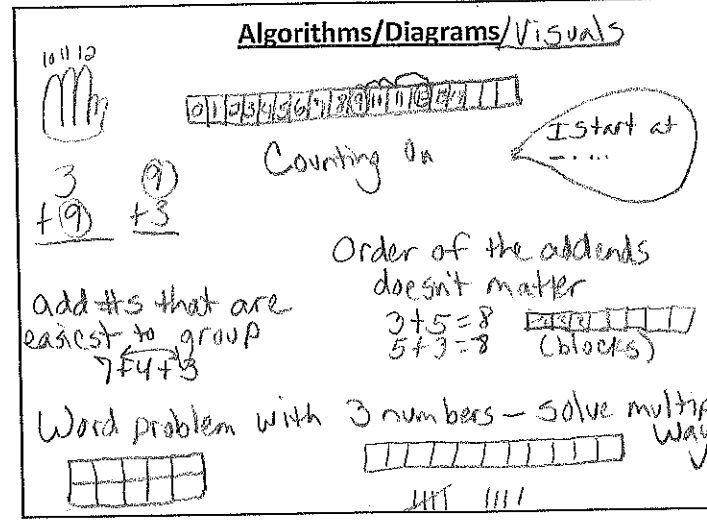 Algorithms/Diagrams/Visuals
10 11 12
0 1 2 3 4 5 6 7 8 9 10 11 12 13
Counting On
I start at
-....
3
+9
9
+3
Order of the addends
doesn't matter
3+5=8
5+3=8
(blocks)
add #s that are
easiest to group
7+4+3
Word problem with 3 numbers - solve multip
Way